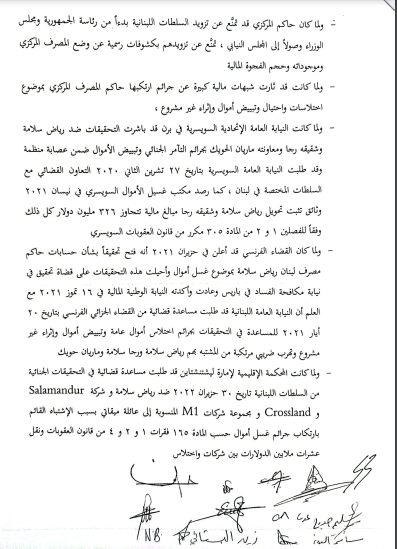 - ولما كان حاكم المركزي قد تمنّع عن تزويد السلطات اللبنانية بدءاً من رئاسة الجمهورية ومجلس
الوزراء وصولاً إلى المجلس النيابي ، تمنّع عن تزويدهم بكشوفات رسمية عن وضع المصرف المركزي
وموجوداته وحجم الفجوة المالية
- ولما كانت قد ثارت شبهات مالية كبيرة عن جرائم ارتكبها حاكم المصرف المركزي بموضوع
اختلاسات واحتيال وتبييض أموال وإثراء غير مشروع ،
- ولما كانت النيابة العامة الإتحادية السويسرية في برن قد باشرت التحقيقات ضد رياض سلامة
وشقيقه رجا ومعاونته ماريان الحويك بجرائم التآمر الجنائي وتبييض الأموال ضمن عصابة منظمة
وقد طلبت النيابة العامة السويسرية بتاريخ ٢٧ تشرين الثاني ٢٠٢٠ التعاون القضائي مع
السلطات المختصة في لبنان ، كما رصد مكتب غسيل الأموال السويسري في نيسان ٢٠٢١
وثائق تثبت تحويل رياض سلامة وشقيقه رجا مبالغ مالية تتجاوز ٣٢٦ مليون دولار كل ذلك
وفقاً للفصلين ١ و ٢ من المادة ٣٠٥ مكرر من قانون العقوبات السويسري
- ولما كان القضاء الفرنسي قد أعلن في حزيران ٢٠٢١ أنه فتح تحقيقاً بشأن حسابات حاكم
مصرف لبنان رياض سلامة بموضوع غسل أموال وأحيلت هذه التحقيقات على قضاة تحقيق في
نيابة مكافحة الفساد في باريس وعادت وأكدته النيابة الوطنية المالية في ١٦ تموز ٢٠٢١ مع
العلم أن النيابة العامة اللبنانية قد طلبت مساعدة قضائية من القضاء الجزائي الفرنسي بتاريخ ٢٠
أيار ٢٠٢١ للمساعدة في التحقيقات بجرائم اختلاس أموال عامة وتبييض أموال وإثراء غير
مشروع وتهرب ضريبي مرتكبة من المشتبه بهم رياض سلامة ورجا سلامة وماريان حويك
- ولما كانت المحكمة الإقليمية لإمارة ليشتنشتاين قد طلبت مساعدة قضائية في التحقيقات الجنائية
من السلطات اللبنانية تاريخ ٣٠ حزيران ٢٠٢٢ ضد رياض سلامة و شركة Salamandur
و Crossland و مجموعة شركات M1 المنسوبة إلى عائلة ميقاتي بسبب الإشتباه القائم
بارتكاب جرائم غسل أموال حسب المادة ١٦٥ فقرات ١ و ٢ و ٤ من قانون العقوبات ونقل
عشرات ملايين الدولارات بين شركات واختلاس
NB